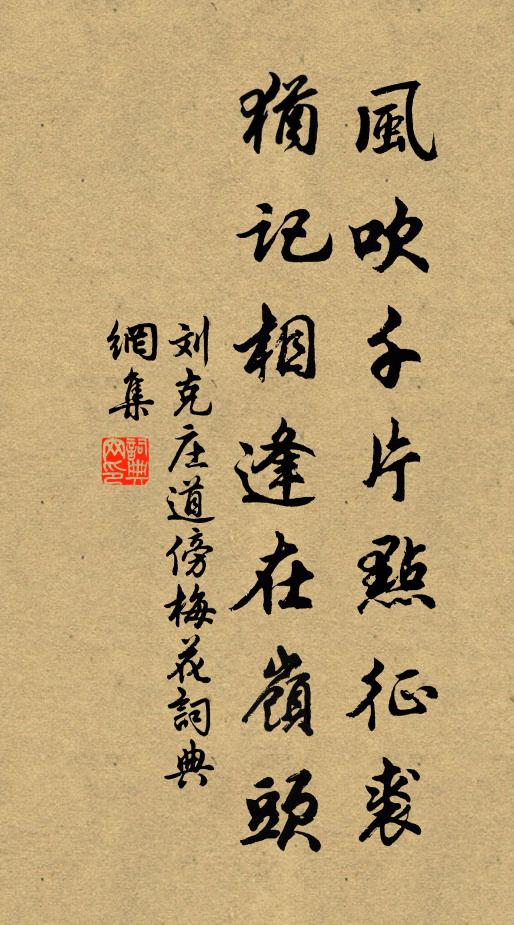 風吹千片點征裘
猶記相逢在嶺頭
刘克庄道傍梅花詞典
網集
詞典
网印